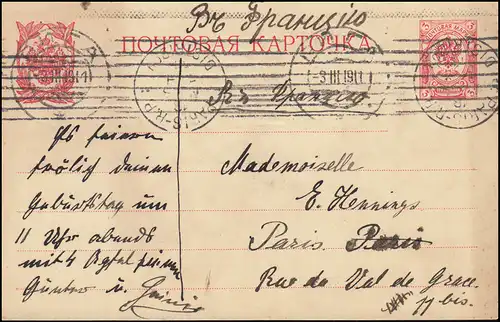 Въ Францію
ПОЧТОВАЯ КАРТОЧКА
-3 III 1911
Въ Францію.
Es feiern
frölich deinen
Geburtstag um
11 Uhr abends
mit 4
Günter u.
Mademoiselle
E. Hennings
Paris Paris
Rue du Val de Grace.
bis.